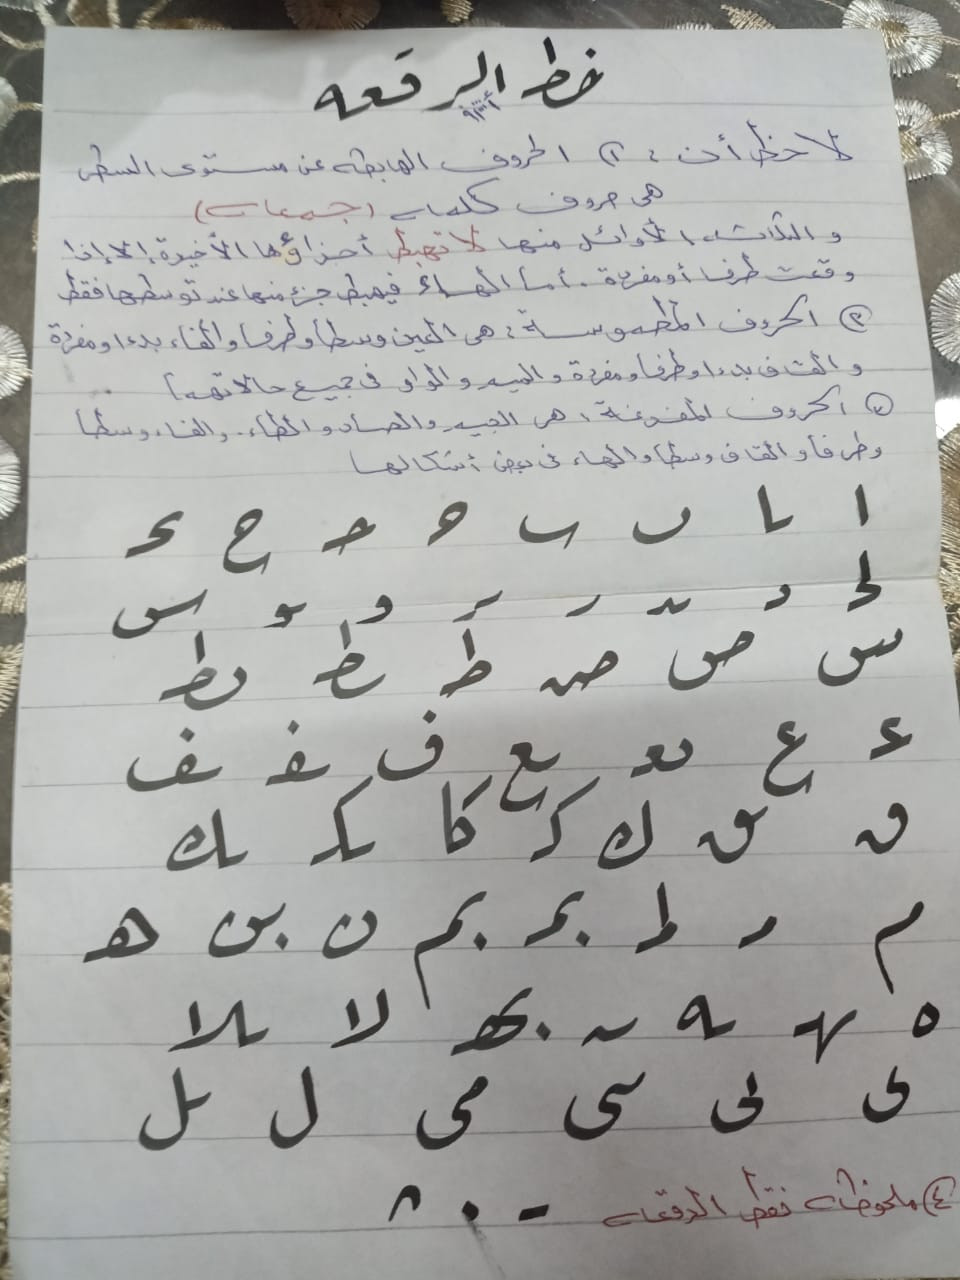 خط الرقعه
لاحظ أن : ① الحروف الهابطه عن مستوى السطر
هى حروف كلمات (جمعات)
والثلاثه الأوائل منها لا تهبط أجزاؤها الأخيرة إلا إذا
وقعت طرفا أو مفردة . أما الهاء فيهبط جزء منها عند توسطها فقط
② الحروف المطموسة : هى العين وسطا وطرفا والفاء بدءا ومفردة
والقاف بدءا وطرفا ومفردة والميم والواو فى جميع حالاتهما
③ الحروف المفرغة : هى الجيم والصاد والطاء والفاء وسطا
وطرفا والقاف وسطا والهاء فى بعض أشكالها
ا ـا ٮ ـٮ ح حـ ج ء
د ـد ر ـر و ـو س
س ص صـ ط ـط ـط
ع ع ـعـ ـع ف فـ ـف
ق ـق ك كـ كا ـكـ ـك
م مـ ـم بمـ بم ن بن هـ
ه ـهـ ـه ـه بھ لا ـلا
ى لى سى مى ل ـل
④ ملحوظات نقط الرقعات